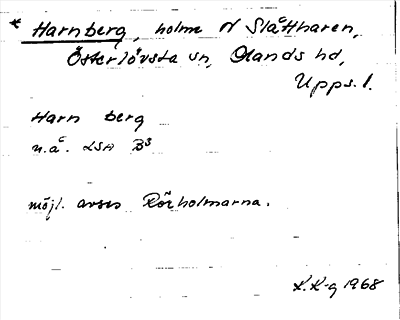 * Harnberg, holme N Slåttharen,
Österlövsta sn, Olands hd,
Upps. l.
Harn berg
n.å. LSA B3
möjl. avses Rörholmarna.
L. K-g 1968